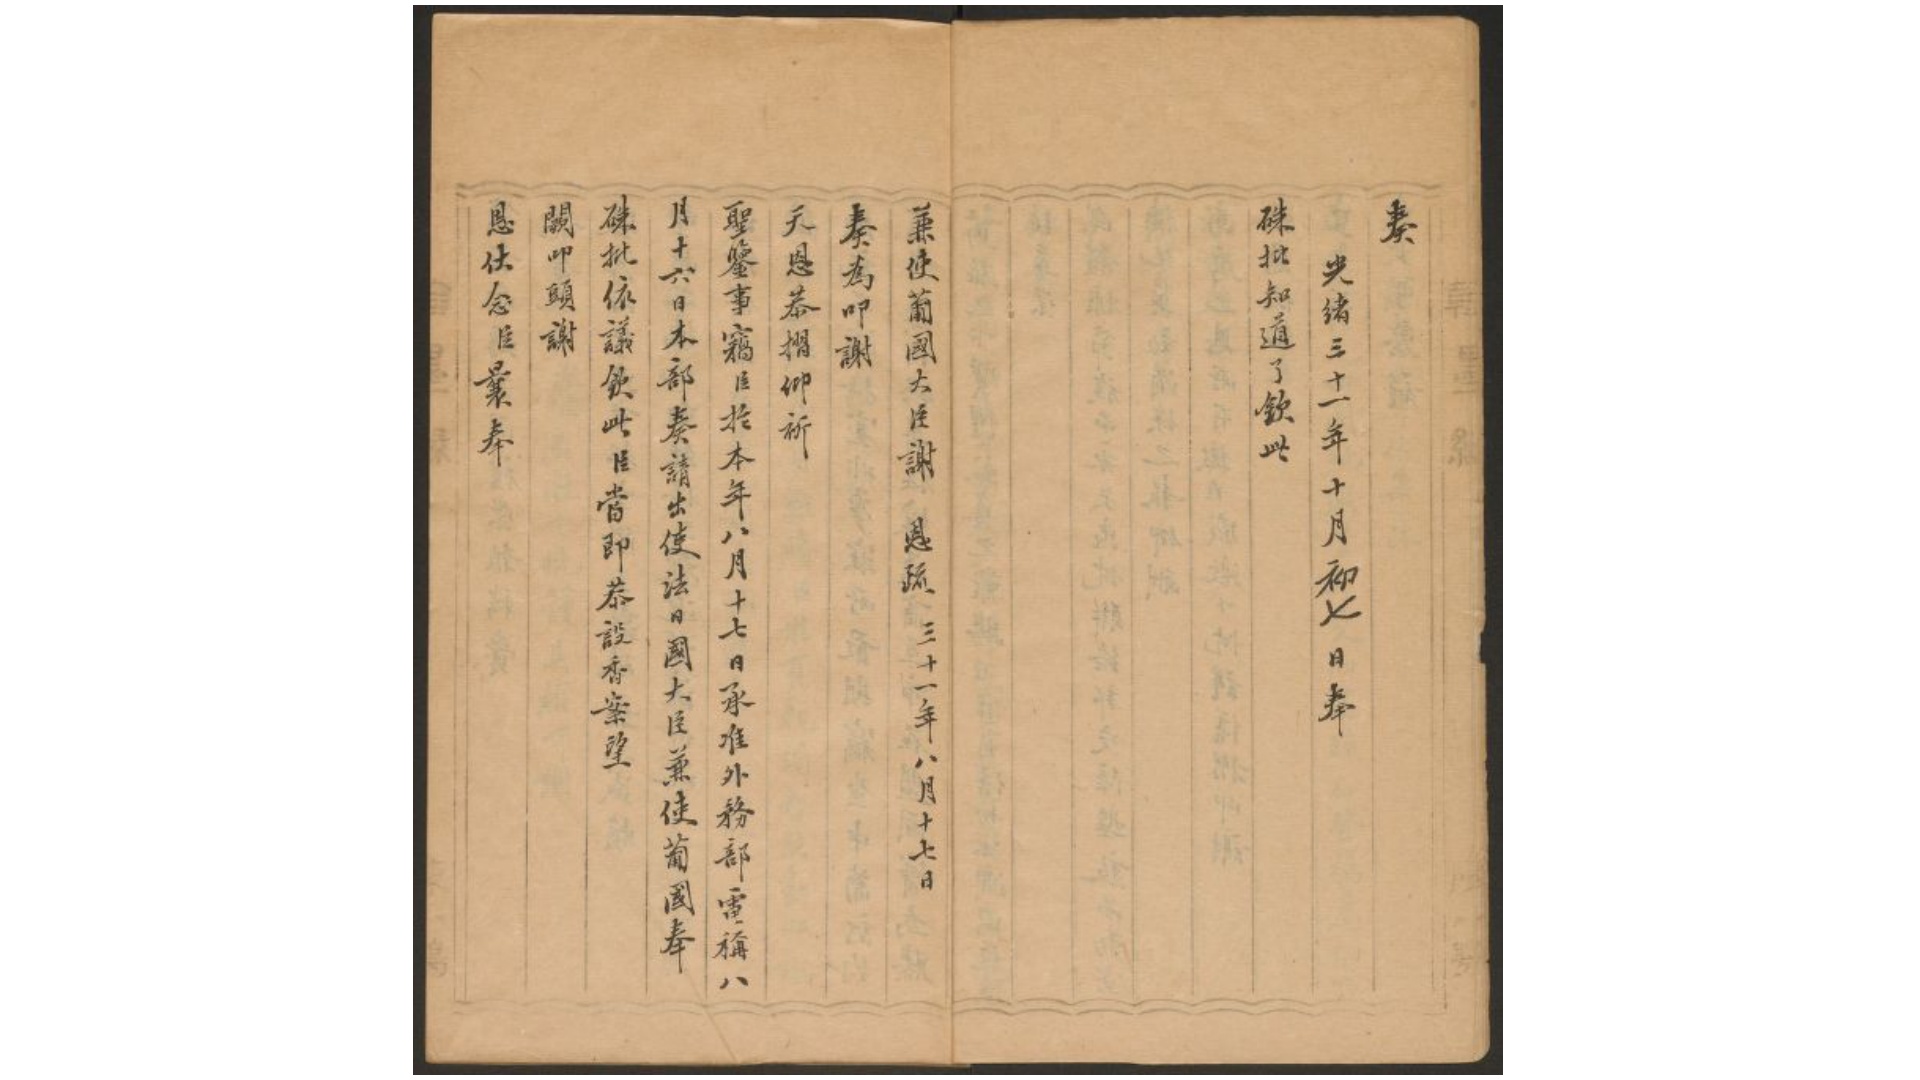 奏
光緒三十一年十月初七日奉
硃批知道了欽此
兼使葡國大臣謝 恩疏 三十一年八月十七日
奏為叩謝
天恩恭摺仰祈
聖鑒事竊臣於本年八月十七日承准外務部電稱八
月十六日本部奏請出使法日國大臣兼使葡國奉
硃批依議欽此臣當即恭設香案望
闕叩頭謝
恩伏念臣曩奉